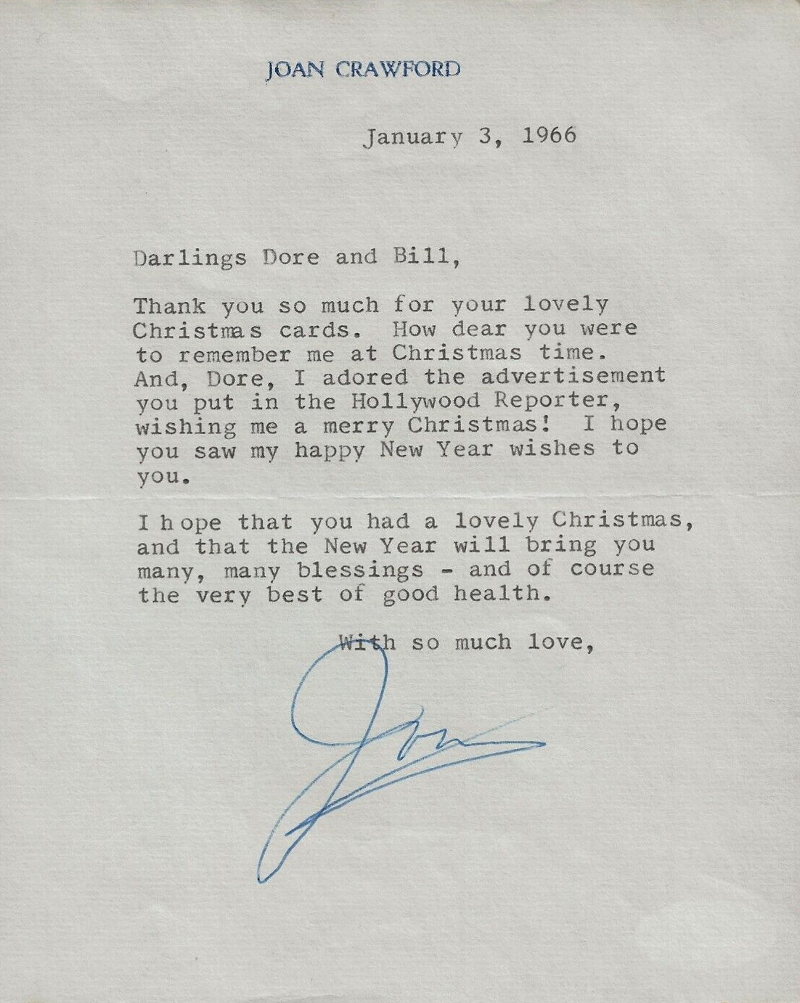 JOAN CRAWFORD
January 3, 1966
Darlings Dore and Bill,
Thank you so much for your lovely
Christmas cards.  How dear you were
to remember me at Christmas time.
And, Dore, I adored the advertisement
you put in the Hollywood Reporter,
wishing me a merry Christmas!  I hope
you saw my happy New Year wishes to
you.
I hope that you had a lovely Christmas,
and that the New Year will bring you
many, many blessings - and of course
the very best of good health.
With so much love,
Joan